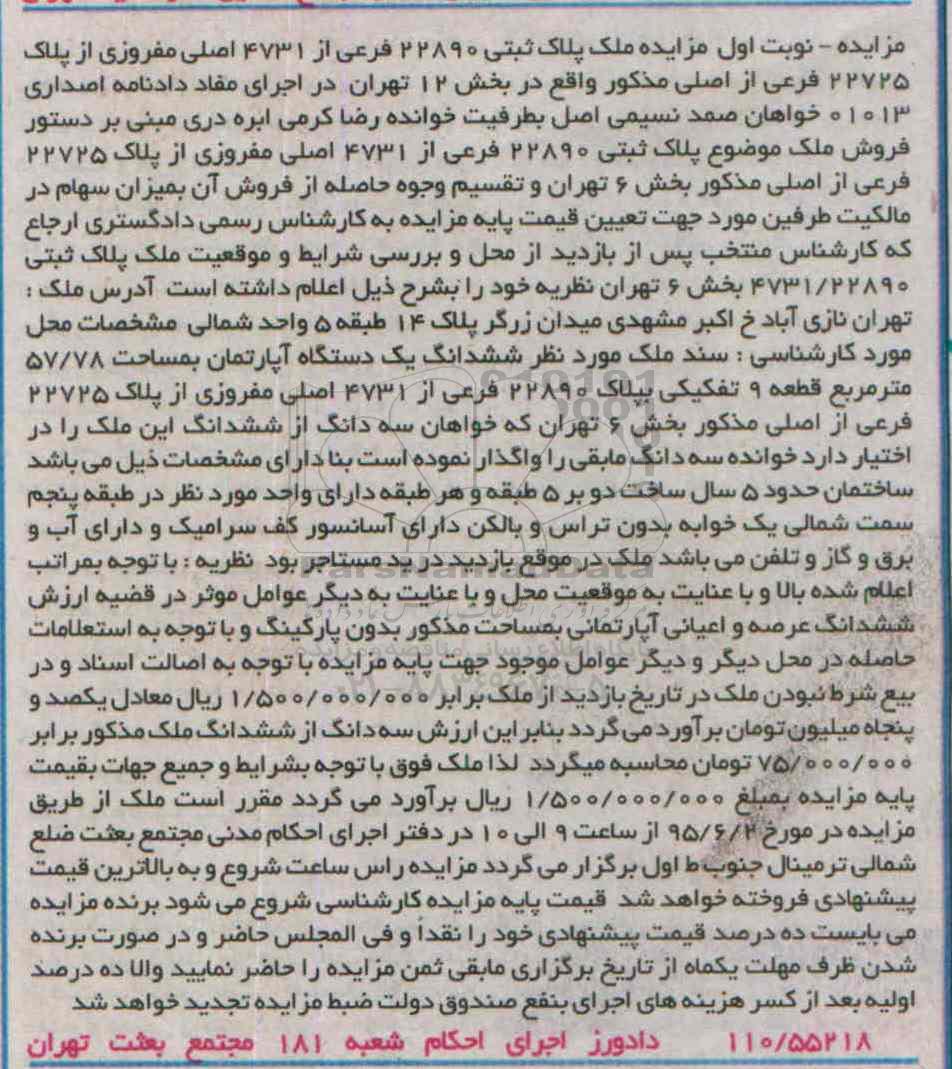 مزایده - نوبت اول مزایده ملک پلاک ثبتی ۲۲۸۹۰ فرعی از ۴۷۳۱ اصلی مفروزی از پلاک
۲۲۷۲۵ فرعی از اصلی مذکور واقع در بخش ۱۲ تهران در اجرای مفاد دادنامه اصداری
۰۱۰۱۳ خواهان صمد نسیمی اصل بطرفیت خوانده رضا کرمی ابره دری مبنی بر دستور
فروش ملک موضوع پلاک ثبتی ۲۲۸۹۰ فرعی از ۴۷۳۱ اصلی مفروزی از پلاک ۲۲۷۲۵
فرعی از اصلی مذکور بخش ۶ تهران و تقسیم وجوه حاصله از فروش آن بمیزان سهام در
مالکیت طرفین مورد جهت تعیین قیمت پایه مزایده به کارشناس رسمی دادگستری ارجاع
که کارشناس منتخب پس از بازدید از محل و بررسی شرایط و موقعیت ملک پلاک ثبتی
۴۷۳۱/۲۲۸۹۰ بخش ۶ تهران نظریه خود را بشرح ذیل اعلام داشته است آدرس ملک :
تهران نازی آباد خ اکبر مشهدی میدان زرگر پلاک ۱۴ طبقه ۵ واحد شمالی مشخصات محل
مورد کارشناسی : سند ملک مورد نظر ششدانگ یک دستگاه آپارتمان بمساحت ۵۷/۷۸
مترمربع قطعه ۹ تفکیکی بپلاک ۲۲۸۹۰ فرعی از ۴۷۳۱ اصلی مفروزی از پلاک ۲۲۷۲۵
فرعی از اصلی مذکور بخش ۶ تهران که خواهان سه دانگ از ششدانگ این ملک را در
اختیار دارد خوانده سه دانگ مابقی را واگذار نموده است بنا دارای مشخصات ذیل می باشد
ساختمان حدود ۵ سال ساخت دو بر ۵ طبقه و هر طبقه دارای واحد مورد نظر در طبقه پنجم
سمت شمالی یک خوابه بدون تراس و بالکن دارای آسانسور کف سرامیک و دارای آب و
برق و گاز و تلفن می باشد ملک در موقع بازدید در ید مستاجر بود نظریه : با توجه بمراتب
اعلام شده بالا و با عنایت به موقعیت محل و با عنایت به دیگر عوامل موثر در قضیه ارزش
ششدانگ عرصه و اعیانی آپارتمانی بمساحت مذکور بدون پارکینگ و با توجه به استعلامات
حاصله در محل دیگر و دیگر عوامل موجود جهت پایه مزایده با توجه به اصالت اسناد و در
بیع شرط نبودن ملک در تاریخ بازدید از ملک برابر ۱/۵۰۰/۰۰۰/۰۰۰ ریال معادل یکصد و
پنجاه میلیون تومان برآورد می گردد بنابر این ارزش سه دانگ از ششدانگ ملک مذکور برابر
۷۵/۰۰۰/۰۰۰ تومان محاسبه میگردد لذا ملک فوق با توجه بشرایط و جمیع جهات بقیمت
پایه مزایده بمبلغ ۱/۵۰۰/۰۰۰/۰۰۰ ریال برآورد می گردد مقرر است ملک از طریق
مزایده در مورخ ۹۵/۶/۲ از ساعت ۹ الی ۱۰ در دفتر اجرای احکام مدنی مجتمع بعثت ضلع
شمالی ترمینال جنوب ط اول برگزار می گردد مزایده راس ساعت شروع و به بالاترین قیمت
پیشنهادی فروخته خواهد شد قیمت پایه مزایده کارشناسی شروع می شود برنده مزایده
می بایست ده درصد قیمت پیشنهادی خود را نقداً و فی المجلس حاضر و در صورت برنده
شدن ظرف مهلت یکماه از تاریخ برگزاری مابقی ثمن مزایده را حاضر نمایید والا ده درصد
اولیه بعد از کسر هزینه های اجرای بنفع صندوق دولت ضبط مزایده تجدید خواهد شد
۱۱۰/۵۵۲۱۸ دادورز اجرای احکام شعبه ۱۸۱ مجتمع بعثت تهران